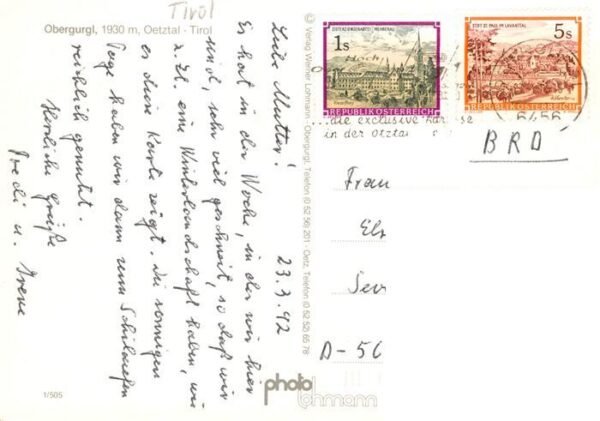 Tirol
Obergurgl, 1930 m, Oetztal - Tirol
23.3.92
Liebe Mutter!
Es hat in der Woche, in der wir hier
sind, sehr viel geschneit, so daß wir
z. Zt. eine Winterlandschaft haben, wie
es diese Karte zeigt. Die sonnigen
Tage haben wir dann zum Schilaufen
reichlich genutzt.
Herzliche Grüße
u. Irene
1/505
© Verlag Walter Lohmann, Obergurgl, Telefon (0 52 56) 201 - Oetz, Telefon (0 52 52) 65 78
photo
lohmann
1s
REPUBLIK ÖSTERREICH
5s
STIFT ST. PAUL IM LAVANTTAL
REPUBLIK ÖSTERREICH
6456
...die exclusive
in der Ötztal
BRD
Frau
Els
Sev
D-56